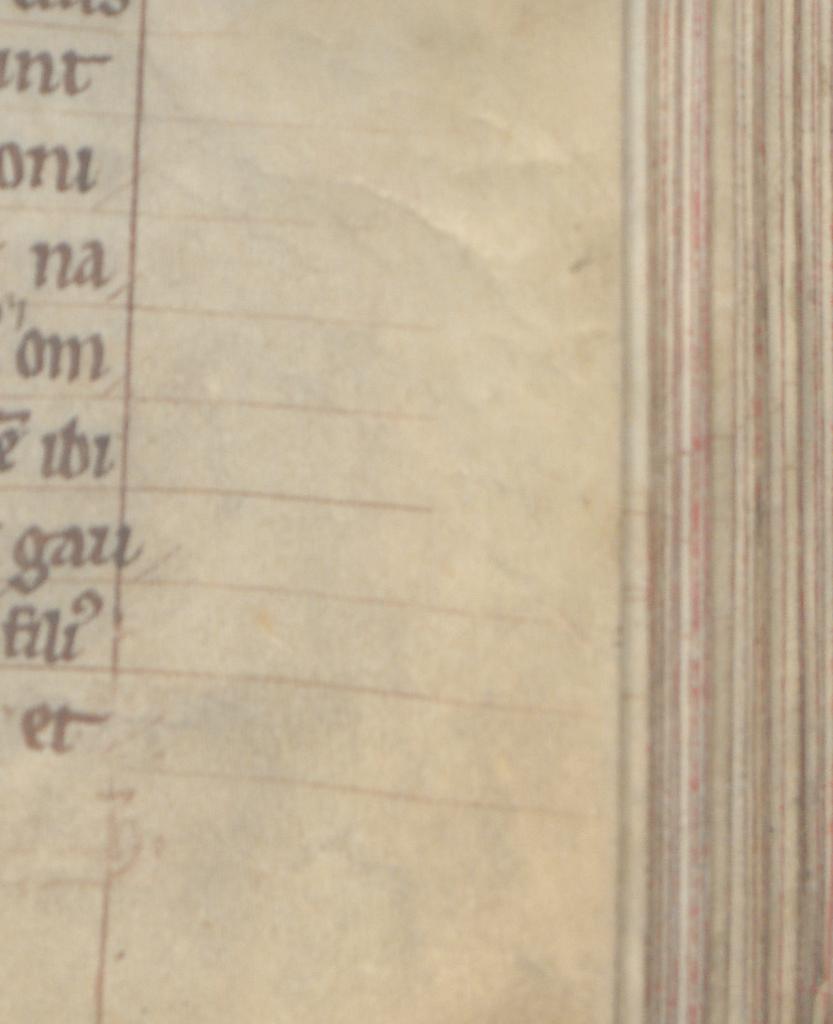 unt
oni
na
om
ē ibi
gau
filiꝰ
et